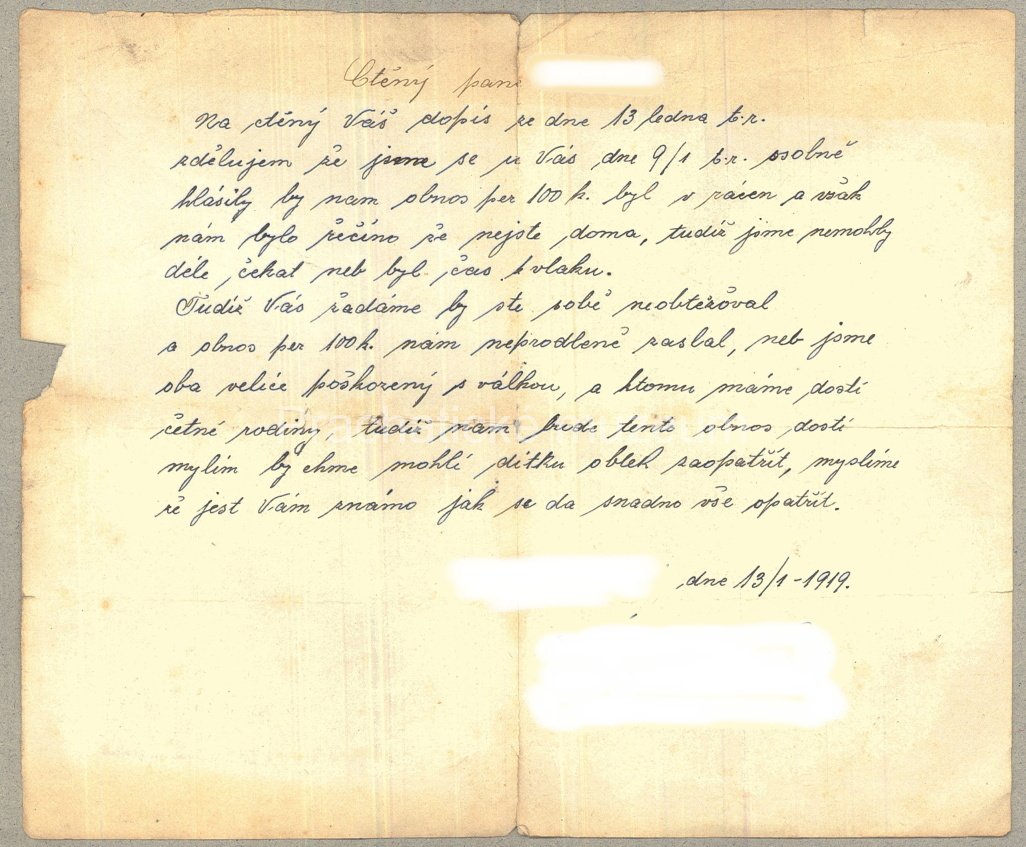 Ctěný pane
Na ctěný Váš dopis ze dne 13 ledna t.r.
zdělujem že jsme se u Vás dne 9/1 t.r. osobně
hlásily by nam obnos per 100 k. byl v racen a však
nám bylo řečíno že nejste doma, tudíž jsme nemohly
déle čekat neb byl čas k vlaku.
Tudíž Vás žadáme by ste sobě neobtěžoval
a obnos per 100 k. nám neprodleně zaslal, neb jsme
oba velice poškozený s válkou, a ktomu máme dosti
četné rodiny, tudíž nam bude tento obnos dosti
mylím by chme mohli dítku oblek zaopatřit, myslíme
že jest Vám známo jak se da snadno vše opatřit.
dne 13/1-1919.